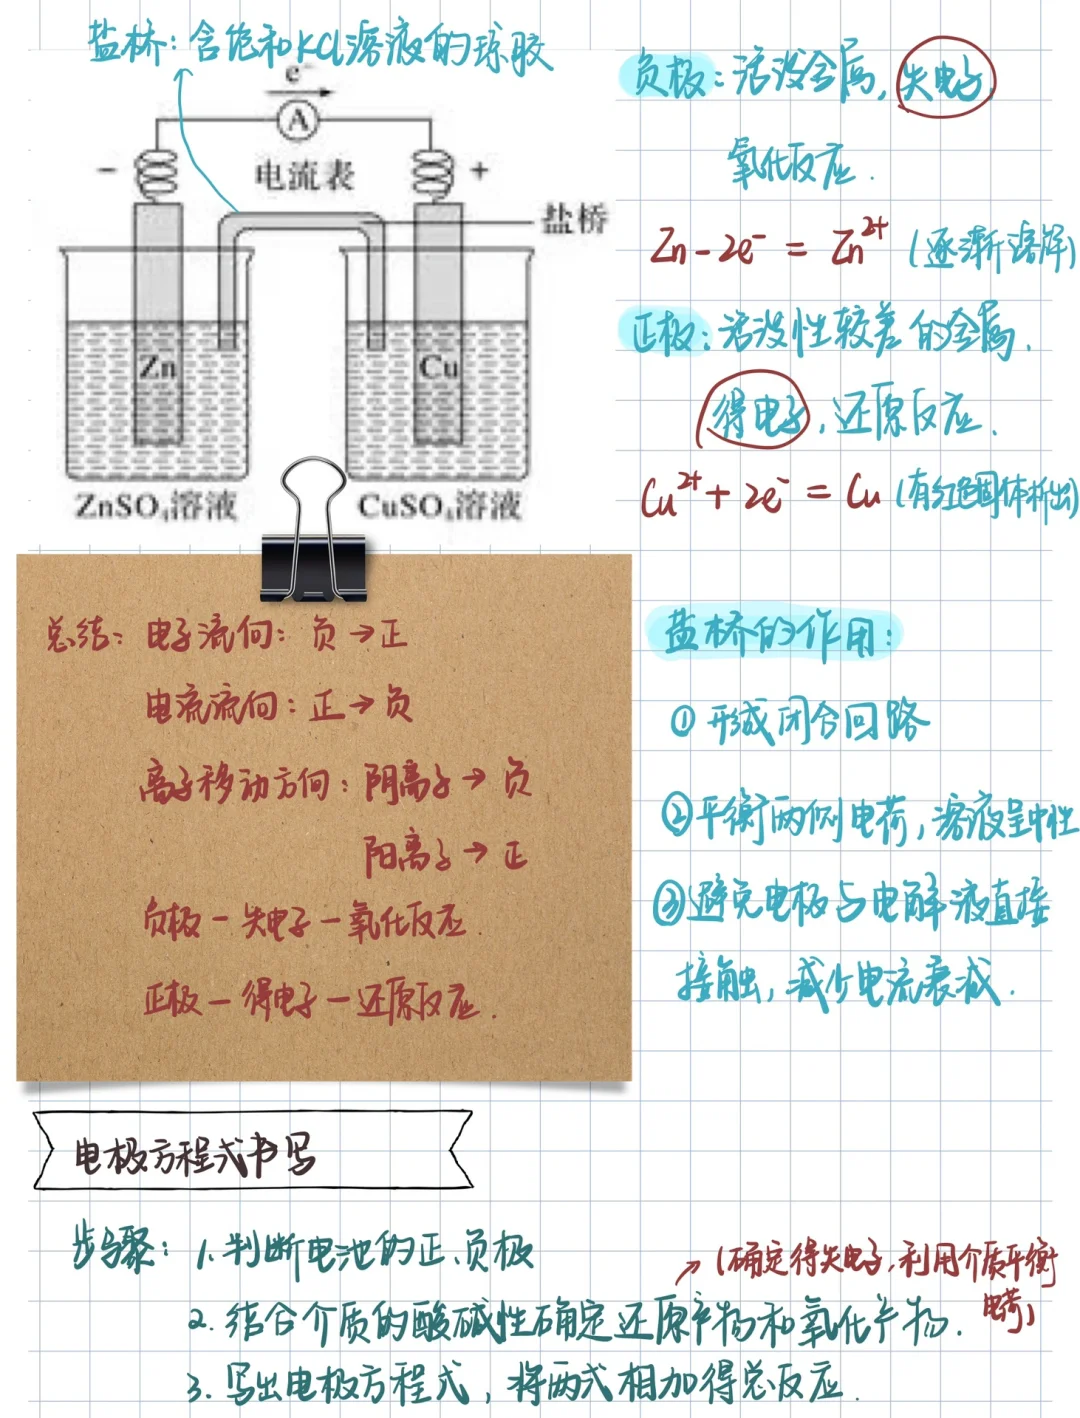 盐桥：含饱和KCl溶液的琼胶
e⁻
A
－
电流表
＋
盐桥
Zn
Cu
ZnSO₄溶液
CuSO₄溶液
负极：活泼金属，失电子
氧化反应.
Zn－2e⁻＝Zn²⁺（逐渐溶解）
正极：活泼性较差的金属.
得电子，还原反应.
Cu²⁺＋2e⁻＝Cu（有红色固体析出）
总结：电子流向：负→正
电流流向：正→负
离子移动方向：阴离子→负
阳离子→正
负极－失电子－氧化反应.
正极－得电子－还原反应.
盐桥的作用：
①形成闭合回路
②平衡两侧电荷，溶液呈中性
③避免电极与电解液直接
接触，减少电流衰减.
电极方程式书写
步骤：1.判断电池的正、负极
→（确定得失电子，利用介质平衡
电荷）
2.结合介质的酸碱性确定还原产物和氧化产物.
3.写出电极方程式，将两式相加得总反应.